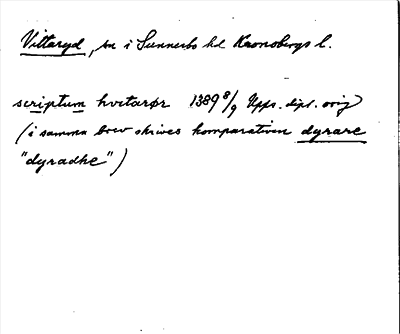 Vittaryd, sn i Sunnerbo hd Kronobergs l.
scriptum hvitarør 1389 8/9 Upps. dipl. orig
(i samma brev skrives komparativen dyrare
"dyradhe")